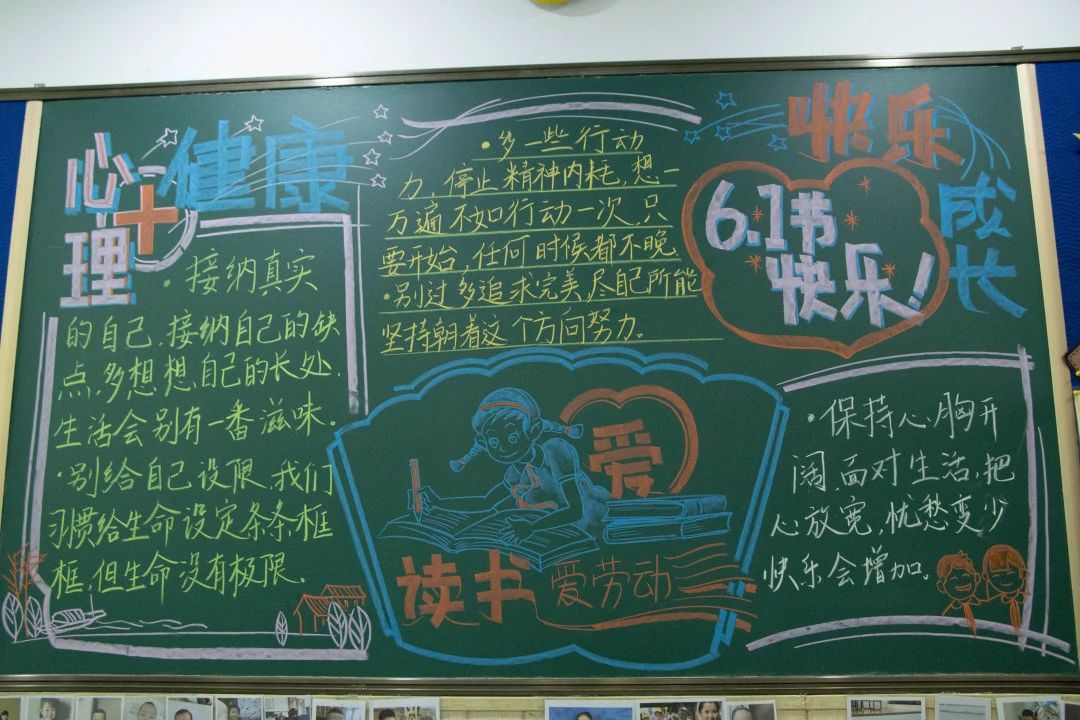 心理健康
·接纳真实
的自己.接纳自己的缺
点,多想想,自己的长处.
生活会别有一番滋味.
·别给自己设限.我们
习惯给生命设定条条框
框,但生命没有极限.
·多一些行动
力,停止精神内耗,想一
万遍不如行动一次,只
要开始,任何时候都不晚
·别过多追求完美,尽自己所能
坚持朝着这个方向努力。
爱
读书
爱劳动
快乐
成长
6.1节
快乐!
·保持心胸开
阔,面对生活,把
心放宽,忧愁变少
快乐会增加。